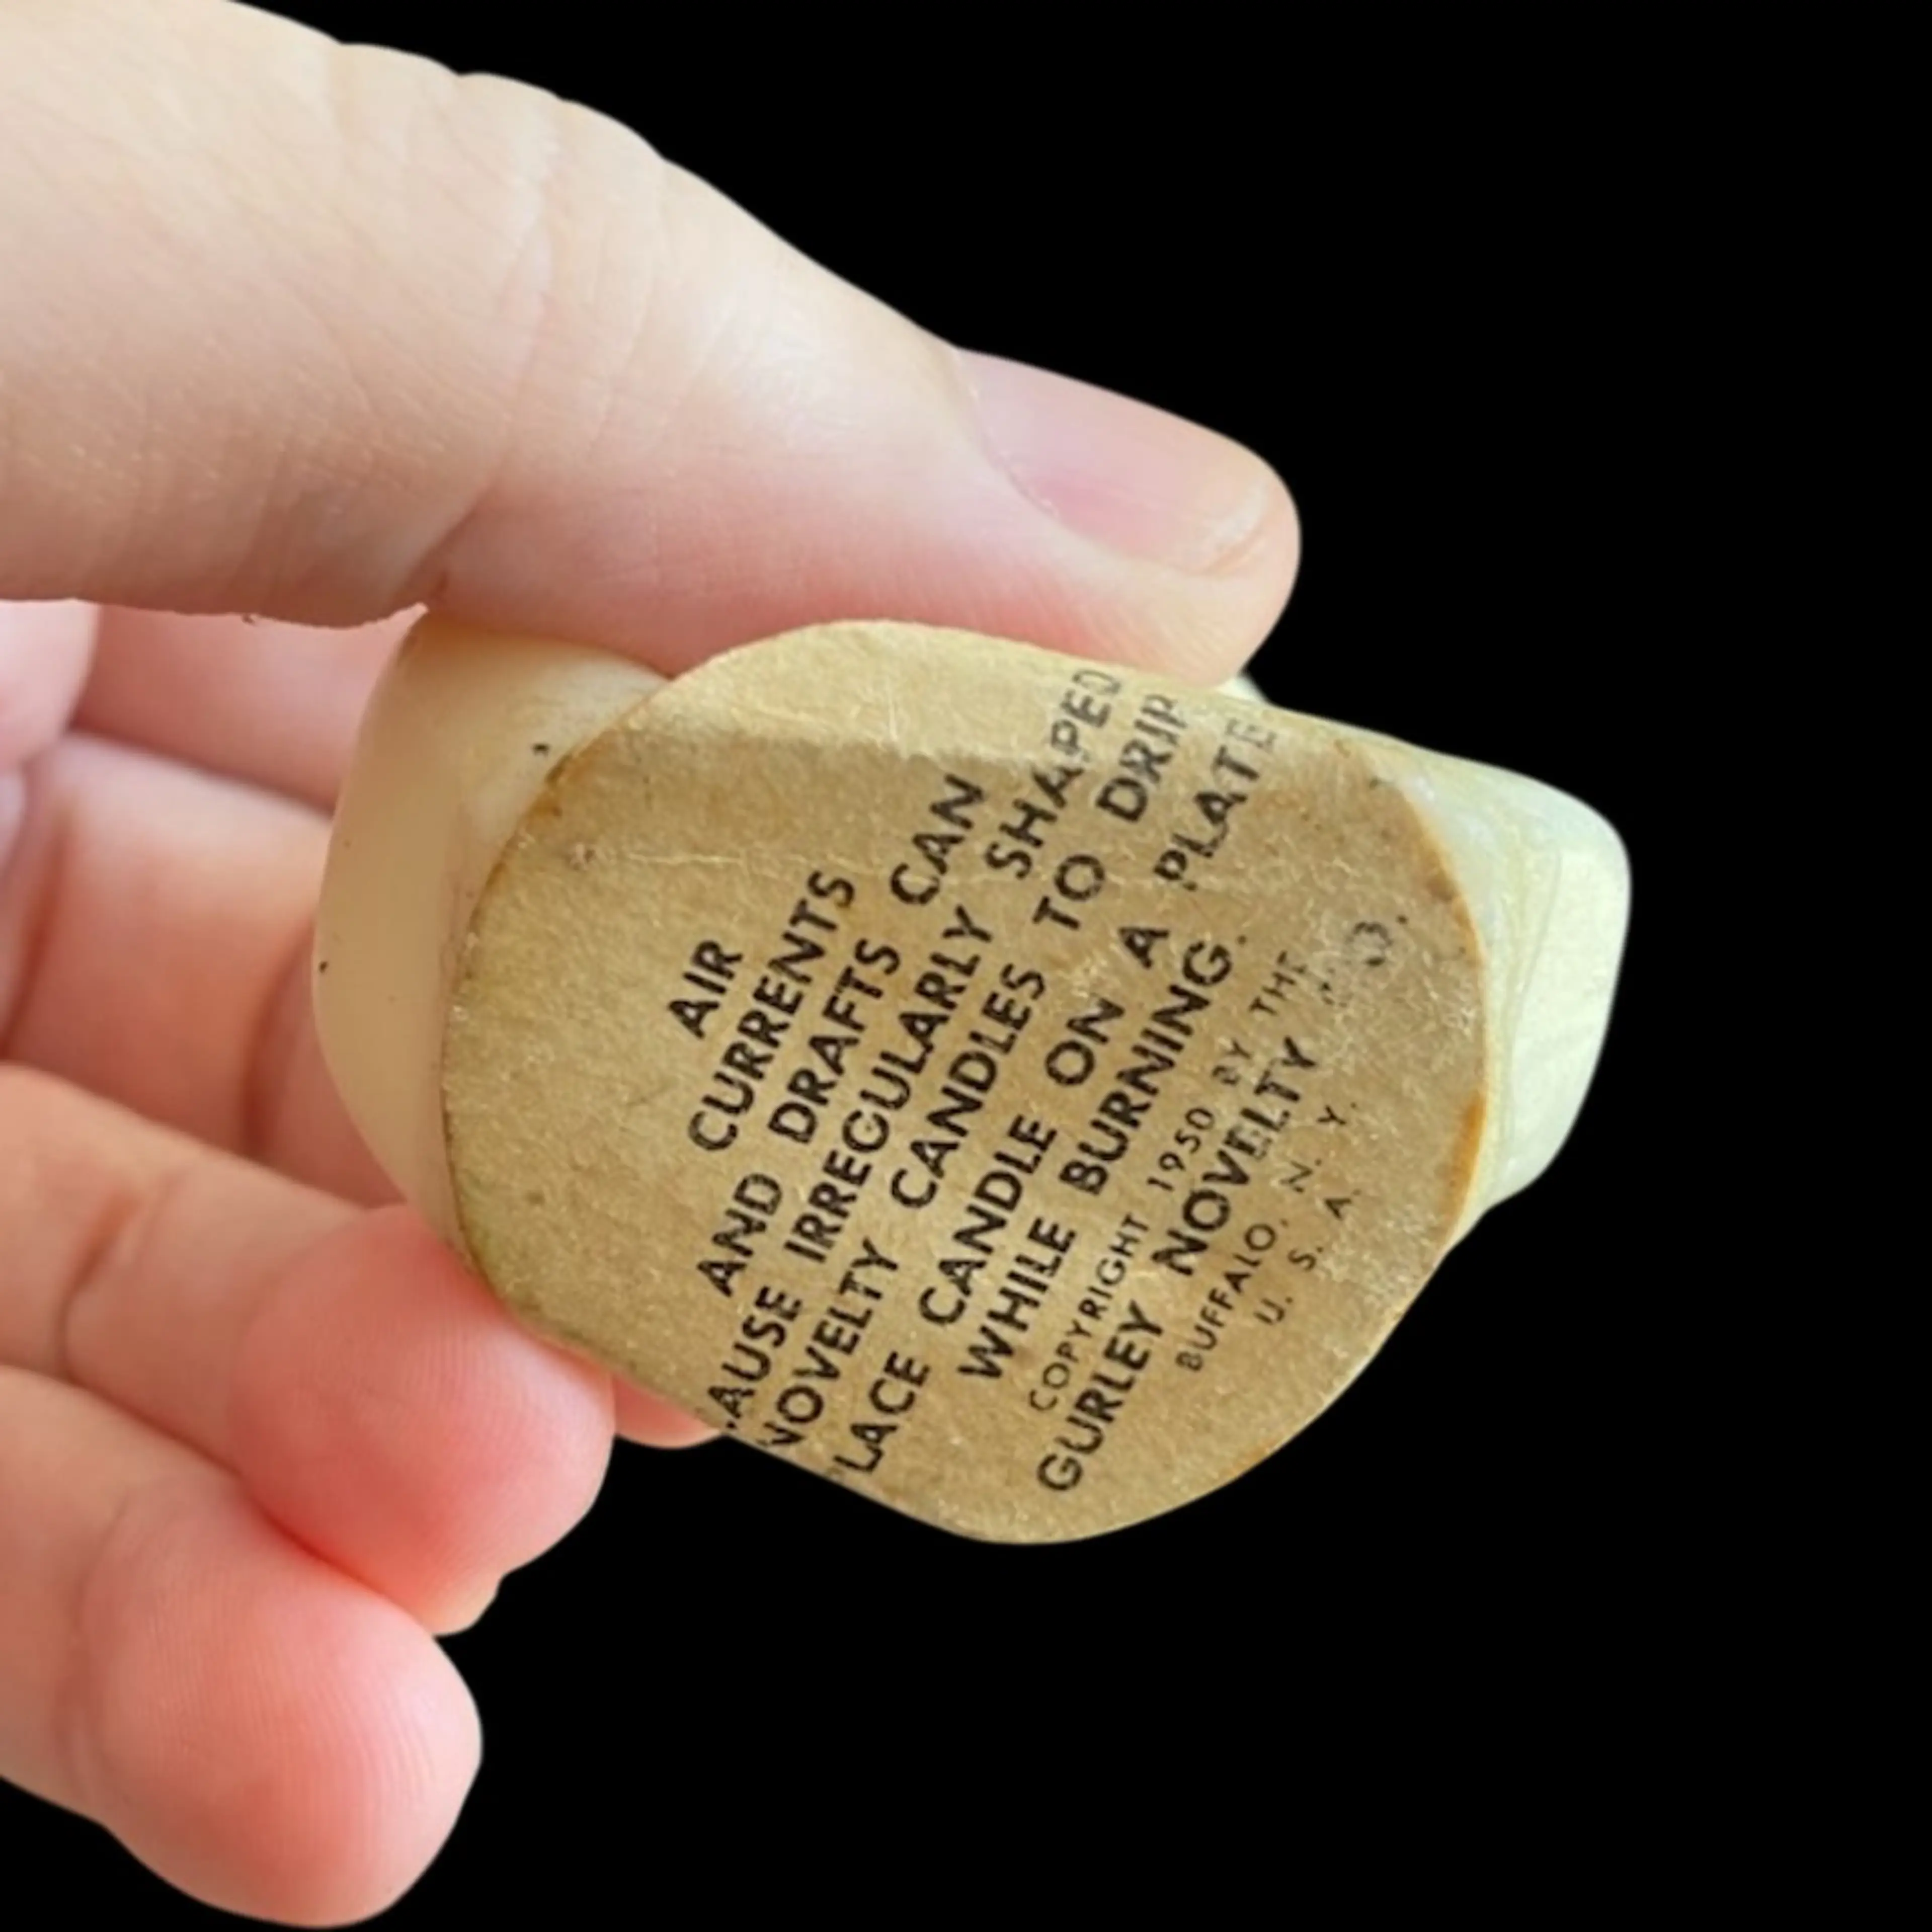 AIR
CURRENTS
AND DRAFTS CAN
AUSE IRREGULARLY SHAPED
NOVELTY CANDLES TO DRIP
PLACE CANDLE ON A PLATE
WHILE BURNING.
COPYRIGHT 1950 BY THE
GURLEY NOVELTY CO.
BUFFALO, N. Y.
U. S. A.